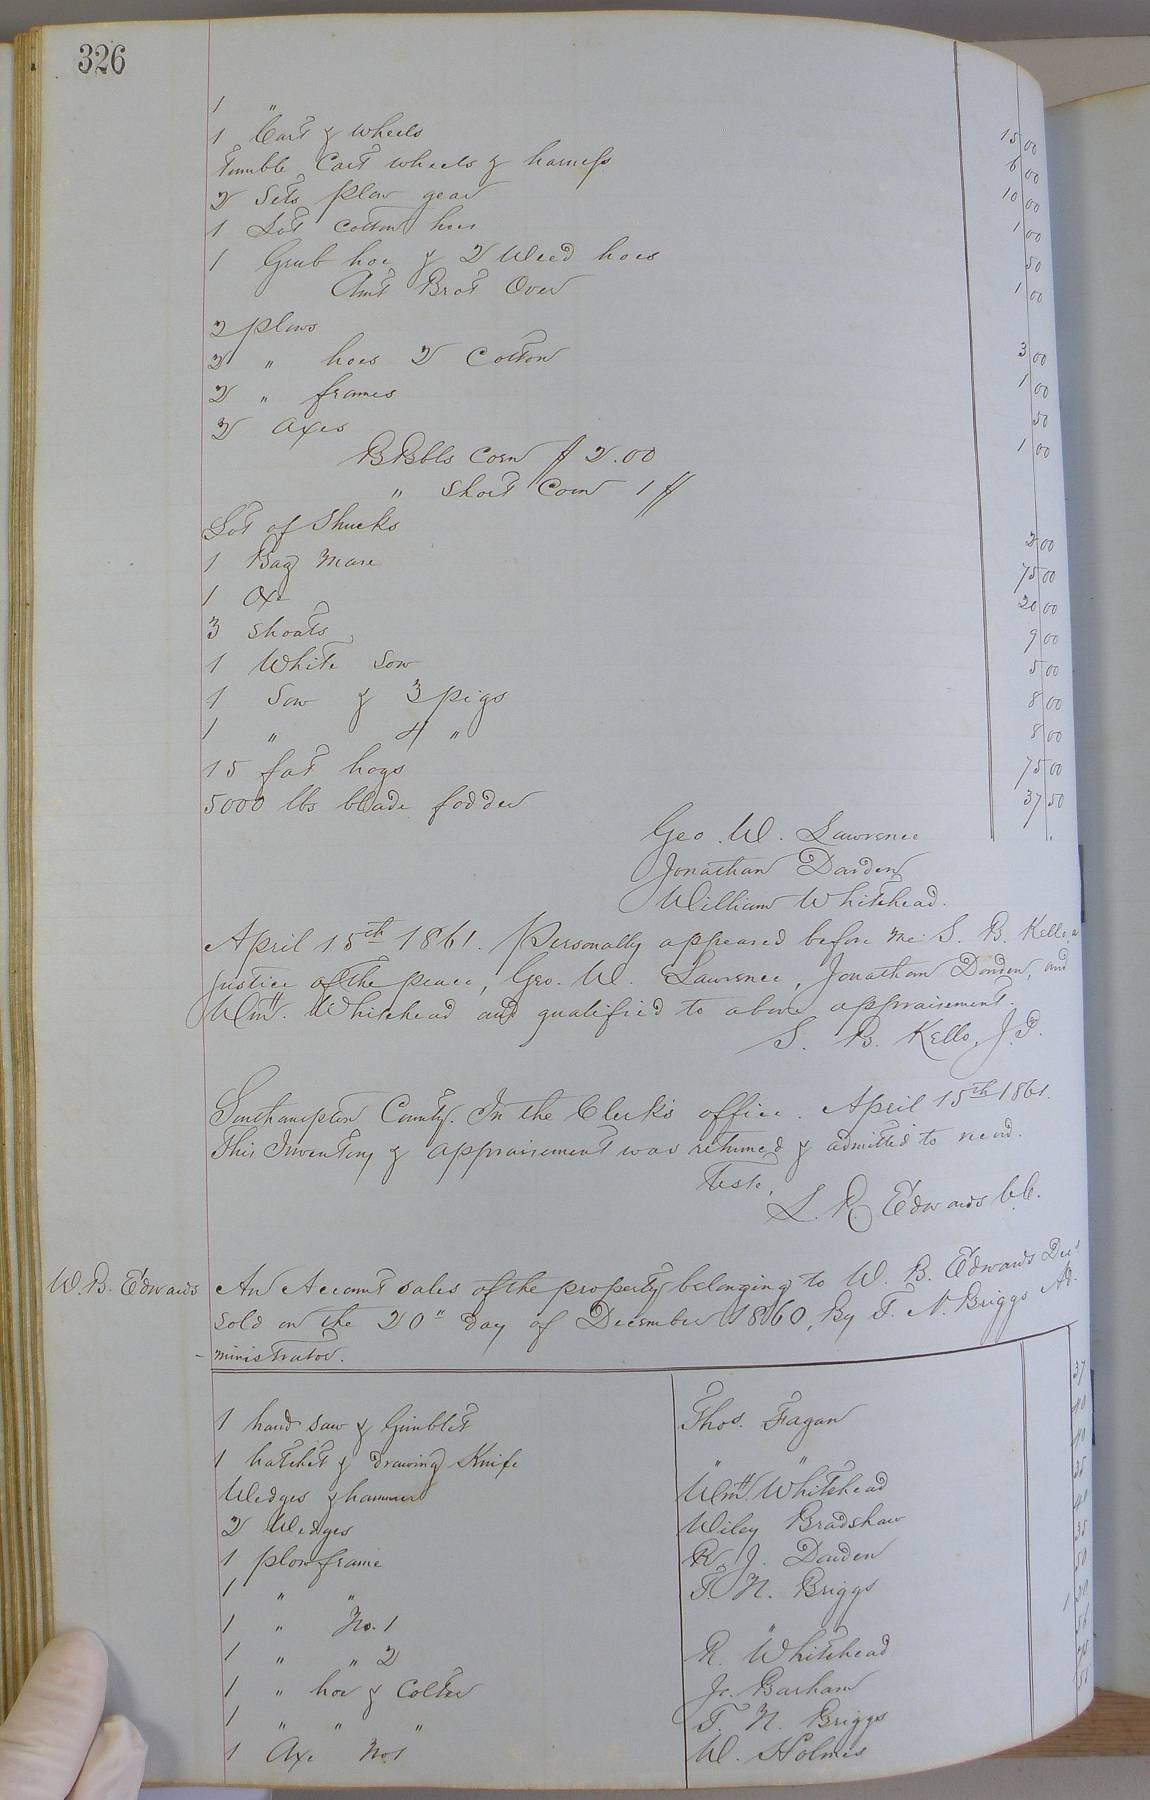 326
1 "
1 Cart & Wheels 15 00
Tumble Cart wheels & harness 6 00
2 Sets plow gear 10 00
1 Lot Cotton hoes 1 00
1 Grub hoe & 2 Weed hoes 50
Amt Brot Over 1 00
2 plows
2 " hoes 2 Cotton 3 00
2 " frames 1 00
2 Axes 50
BBbls Corn $ 2.00 1 00
" Short Corn 1 $
Lot of Shucks 2 00
1 Bay Mare 75 00
1 Ox 20 00
3 Shoats 9 00
1 White Sow 5 00
1 Sow & 3 pigs 8 00
1 " 4 " 8 00
15 fat hogs 75 00
5000 lbs blade fodder 37 50
Geo. W. Lawrence
Jonathan Darden
William Whitehead.
April 15th 1861. Personally appeared before me S. B. Kello, a
justice of the peace, Geo. W. Lawrence, Jonathan Darden, and
Wm H. Whitehead and qualified to above appraisement.
S. B. Kello, J.P.
Southampton County. In the Clerk's office. April 15th 1861.
This Inventory & appraisement was returned & admitted to record.
Teste,
L. R. Edwards C.C.
W. B. Edwards
An Account sales of the property belonging to W. B. Edwards Decd
Sold on the 20" day of December 1860, By T. N. Briggs Ad-
ministrator.
1 hand saw & Gimblet Thos. Fagan 37
1 hatchet & drawing Knife " " 40
Wedges & hammer Wm H. Whitehead 40
2 Wedges Wiley Bradshaw 35
1 plow frame R. J. Darden 40
1 " " T. N. Briggs 35
1 " No. 1 " 50
1 " " 2 R. Whitehead 1 20
1 " hoe & Colter Jo. Barham
1 " " " T. N. Briggs
1 Axe No 1 W. Holmes